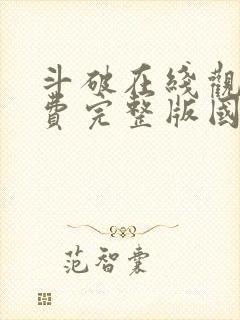 斗破在綫觀
費完整版國
范智棠